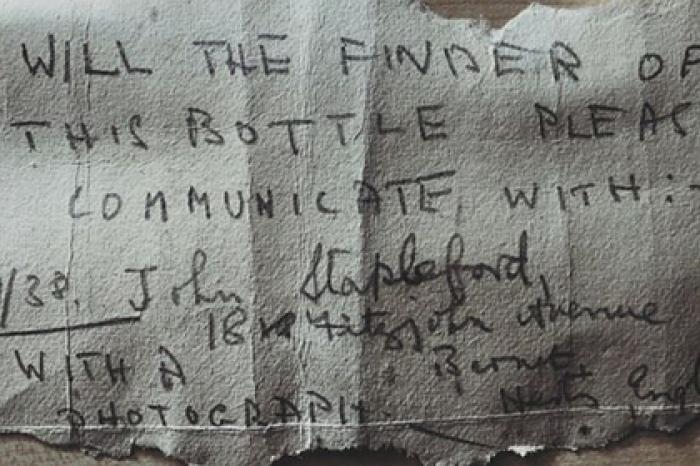 WILL THE FINDER OF
THIS BOTTLE PLEAS
COMMUNICATE WITH:
/38. John Stapleford,
18 Fitzjohn Avenue
WITH A Barnet,
PHOTOGRAPH. Herts Engl